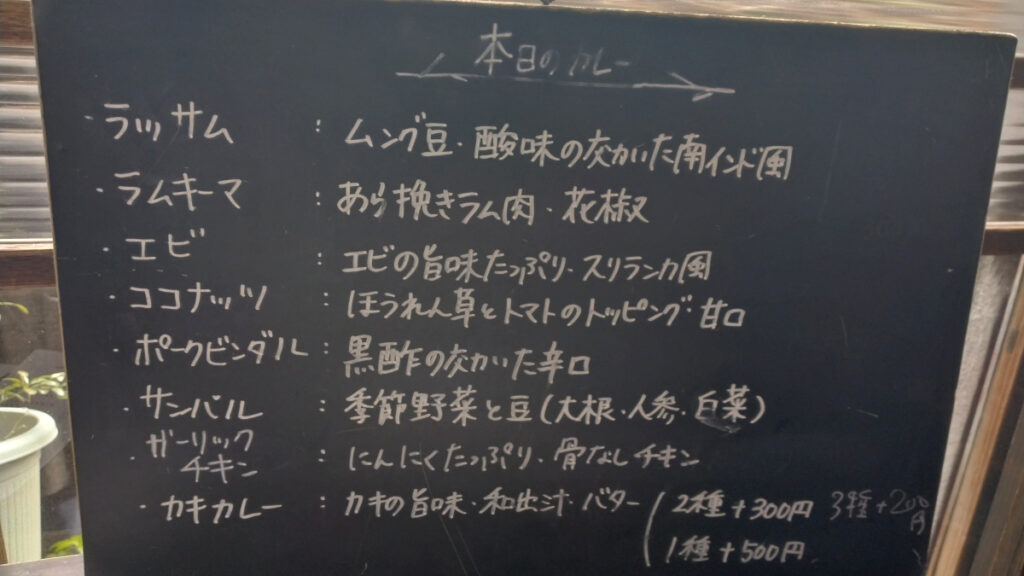 本日のカレー
・ラッサム : ムング豆・酸味の効いた南インド風
・ラムキーマ : あら挽きラム肉・花椒
・エビ : エビの旨味たっぷり・スリランカ風
・ココナッツ : ほうれん草とトマトのトッピング・甘口
・ポークビンダル : 黒酢の効いた辛口
・サンバル : 季節野菜と豆(大根・人参・白菜)
・ガーリック
チキン : にんにくたっぷり・骨なしチキン
・カキカレー : カキの旨味・和出汁・バター (2種+300円 3種+200円)
1種+500円